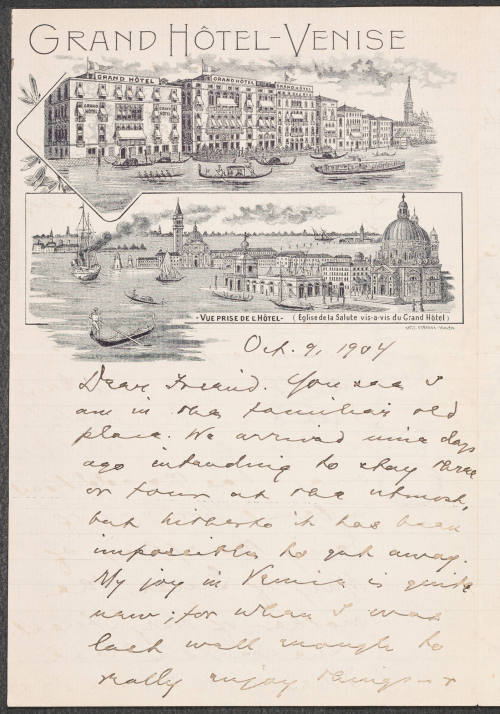 GRAND HÔTEL-VENISE
GRAND HÔTEL
GRAND HÔTEL
GRAND HÔTEL
GRAND HÔTEL
GRAND HÔTEL
-VUE PRISE DE L'HÔTEL- (Église de la Salute vis-a-vis du Grand Hôtel)
Oct. 9, 1904
Dear Friend. You see I
am in the familiar old
place. We arrived nine days
ago intending to stay three
or four at the utmost,
but hitherto it has been
impossible to get away.
My joy in Venice is quite
new; for when I was
last well enough to
really enjoy things - +